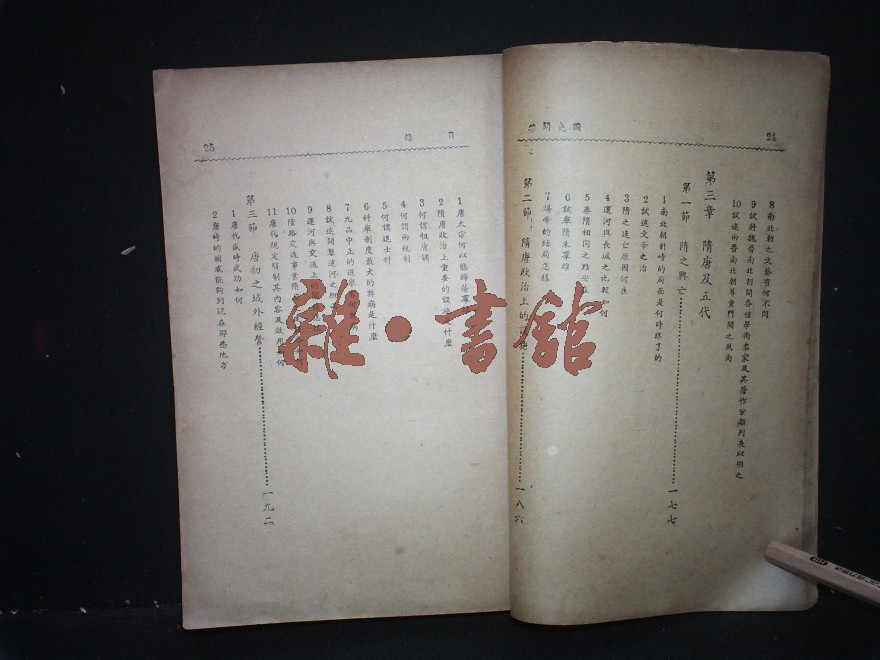 24
國史問答
8 南北朝之文藝有何不同
9 試將魏晉南北朝間各種學術名家及其著作分類列表以明之
10 試述兩晉南北朝尊重門閥之風尚
第三章 隋唐及五代
第一節 隋之興亡 一七七
1 南北朝對峙的局面是何時終了的
2 試述文帝之治
3 隋之速亡原因何在
4 運河與長城之比較如何
5 秦隋相同之點安
6 試舉隋末羣雄
7 煬帝的結局怎樣
第二節 隋唐政治上的 一八六
目錄
25
1 唐太宗何以能歸蕩羣
2 隋唐政治上重要的設施 什麼
3 何謂租庸調
4 何謂兩稅制
5 何謂進士科
6 科舉制度最大的弊病是什麼
7 九品中正的選舉
8 試述開鑿運河之
9 運河與交通上的
10 隋路交通事業
11 唐代規定驛制其內容及效用 何
第三節 唐初之域外經營 一九二
1 唐代盛時武功如何
2 唐時的國威能夠到現在那些地方
雜·書館